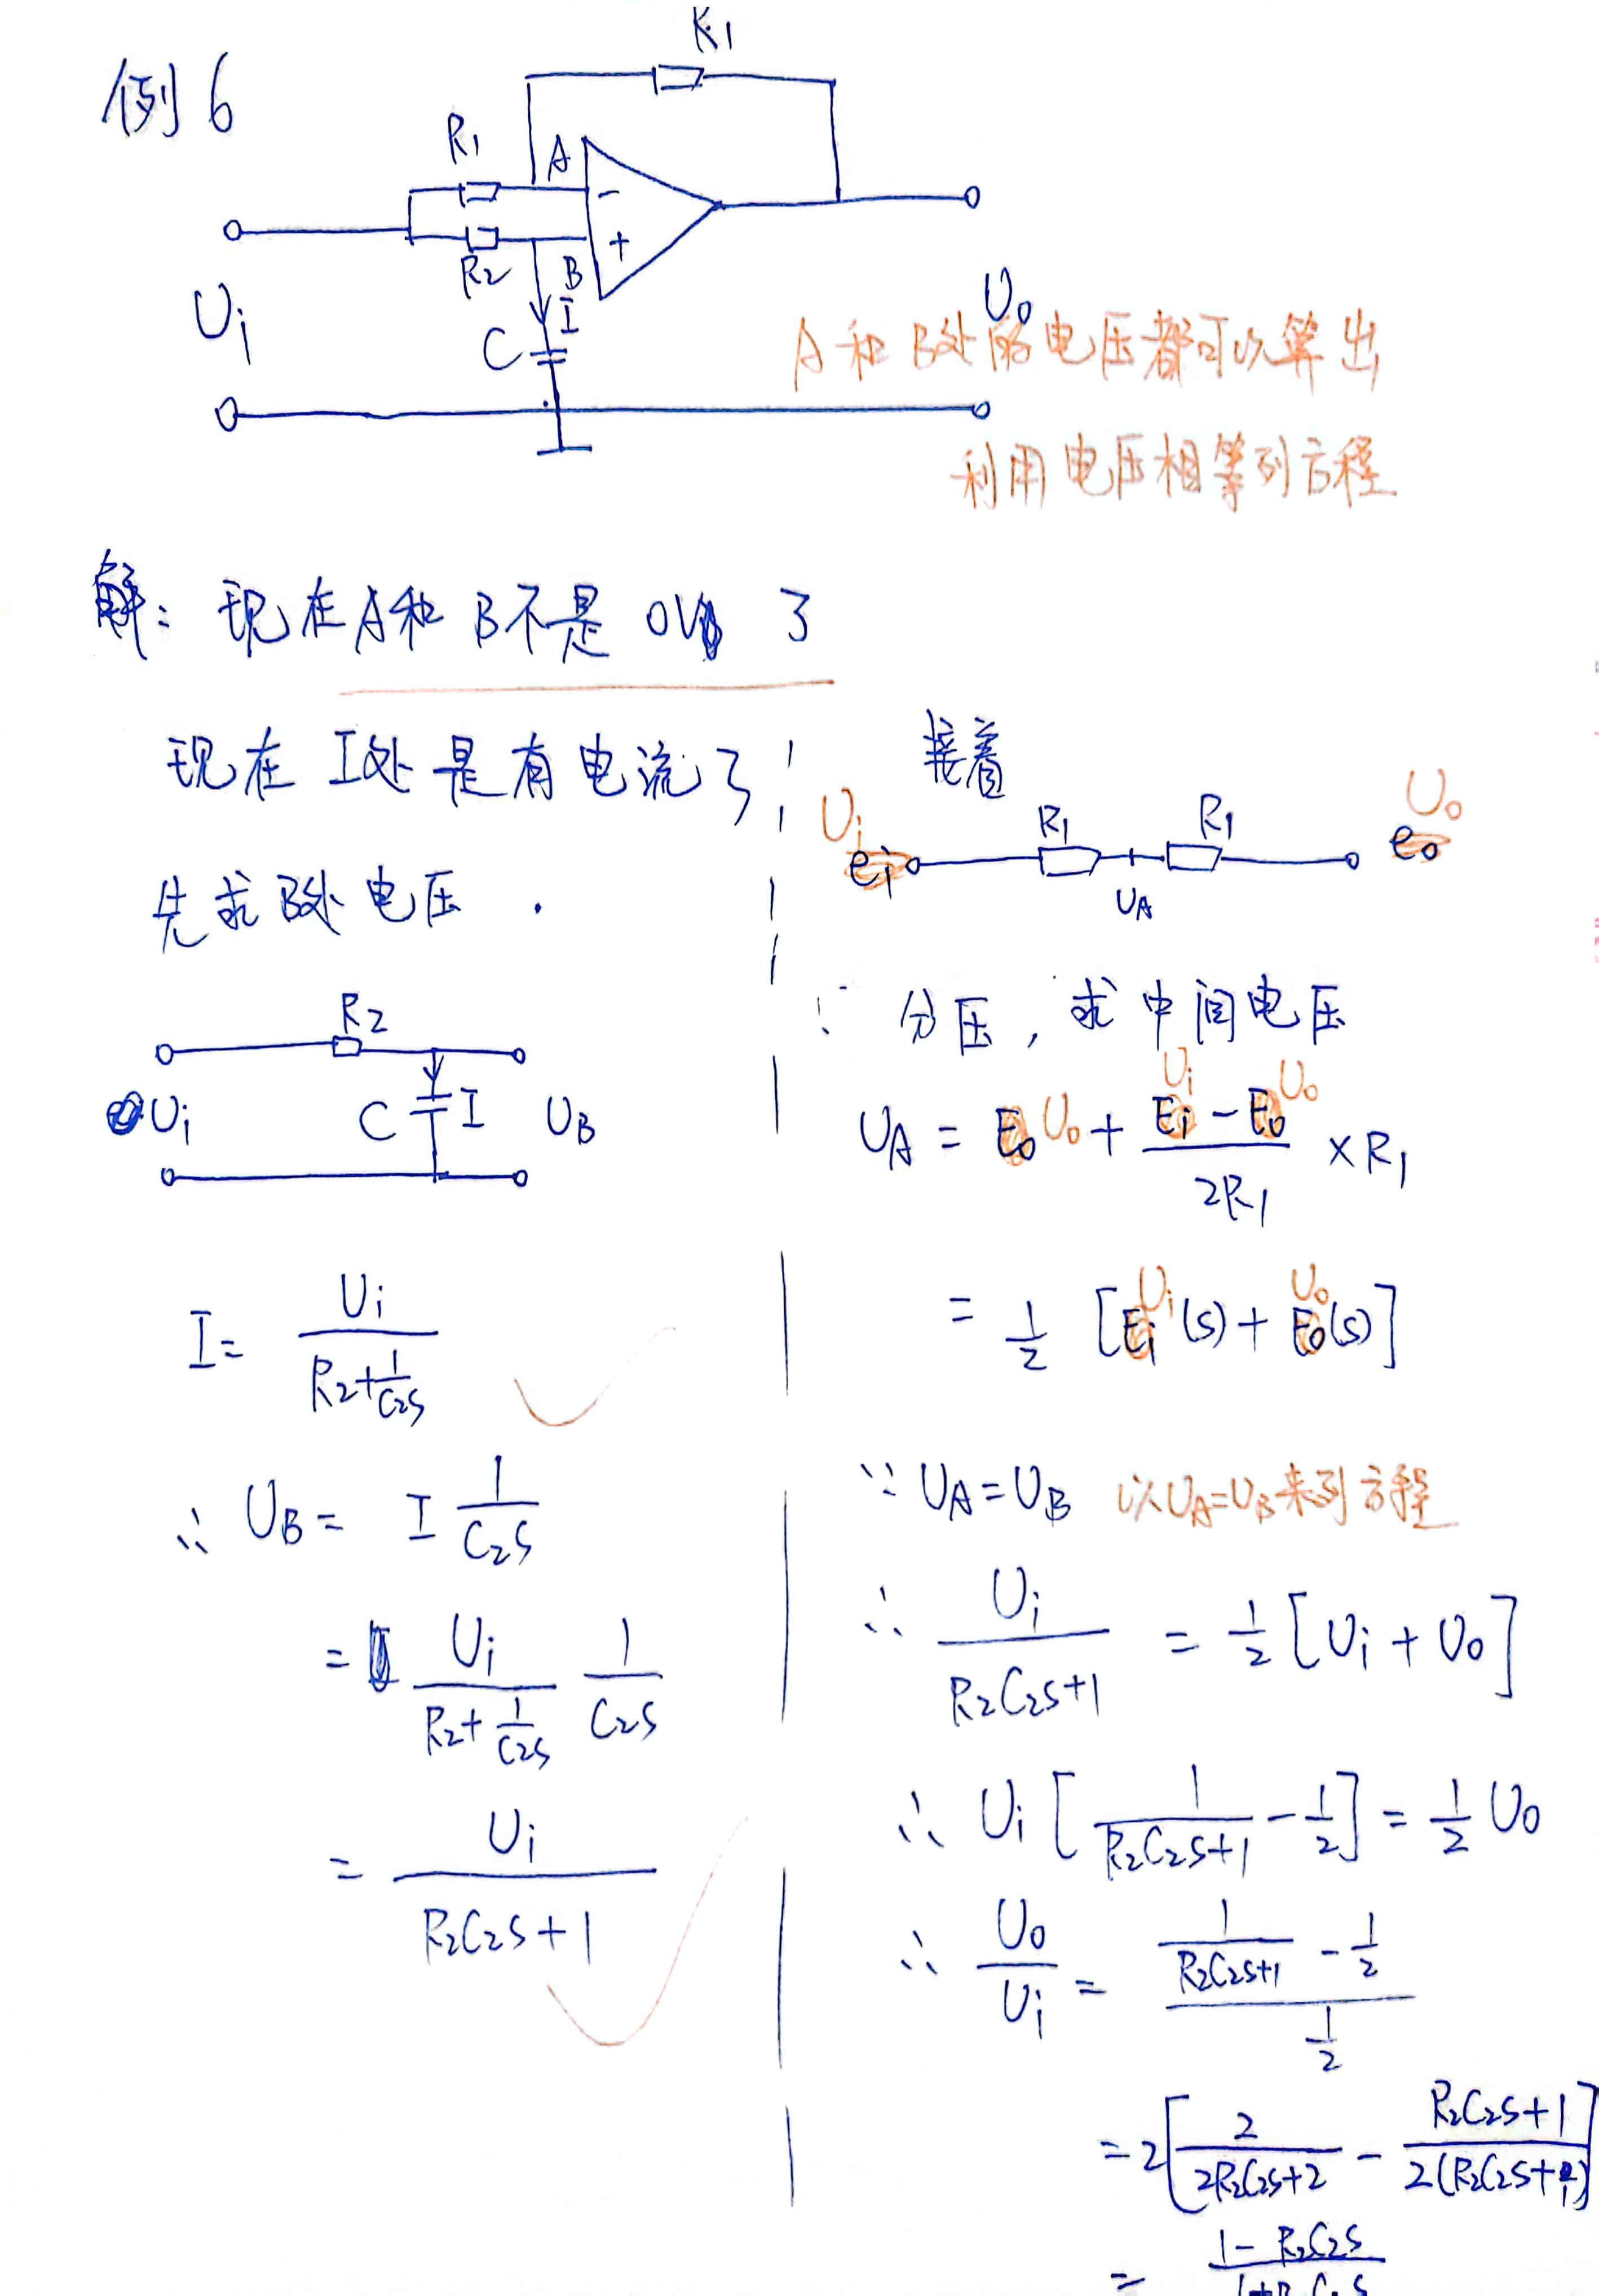 例6
R1
R1
A
-
+
R2
B
I
C
Ui
Uo
A和B处的电压都可以算出
利用电压相等列方程
解：现在A和B不是0V 了
现在 I处是有电流了
先求B处电压.
R2
Ui
C
I
UB
I = Ui / (R2 + 1/(C2S))
∴ UB = I 1/(C2S)
= Ui / (R2 + 1/(C2S)) 1/(C2S)
= Ui / (R2C2S+1)
接着
Ui
Uo
ei
R1
R1
eo
UA
∵ 分压, 求中间电压
UA = Eo Uo + (Ei Ui - Eo Uo) / (2R1) × R1
= 1/2 [Ei Ui (s) + Eo Uo (s)]
∵ UA = UB 以UA=UB来列方程
∴ Ui / (R2C2S+1) = 1/2 [Ui + Uo]
∴ Ui [1/(R2C2S+1) - 1/2] = 1/2 Uo
∴ Uo/Ui = (1/(R2C2S+1) - 1/2) / (1/2)
= 2[2/(2R2C2S+2) - (R2C2S+1)/(2(R2C2S+1))]
= (1-R2C2S)